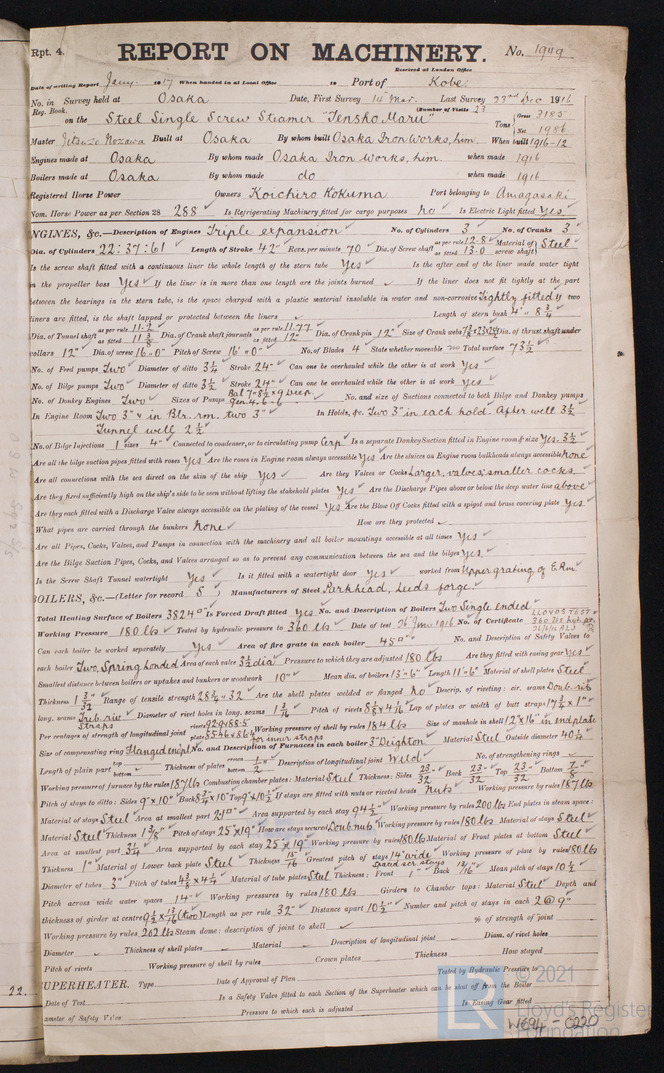 Rpt. 4. REPORT ON MACHINERY. No. 1949
Received at London Office
Date of writing Report Jany. 1917 When handed in at Local Office 19 Port of Kobe.
No. in Survey held at Osaka Date, First Survey 14 Mar. Last Survey 23rd Dec 1916
Reg. Book. (Number of Visits 23
on the Steel Single Screw Steamer "Tensho Maru" Tons Gross 3185 Net 1986
Master Built at Osaka By whom built Osaka Iron Works, Lim. When built 1916-12
Engines made at Osaka By whom made Osaka Iron Works, Lim. when made 1916
Boilers made at Osaka By whom made do when made 1916
Registered Horse Power Owners Koichiro Kokuma Port belonging to Amagasaki
Nom. Horse Power as per Section 28 288 Is Refrigerating Machinery fitted for cargo purposes No Is Electric Light fitted Yes
ENGINES, &c.—Description of Engines Triple expansion No. of Cylinders 3 No. of Cranks 3
Dia. of Cylinders 22:37:61 Length of Stroke 42" Revs. per minute 70 Dia. of Screw shaft as per rule 12.8 as fitted 13.0 Material of screw shaft Steel
Is the screw shaft fitted with a continuous liner the whole length of the stern tube Yes Is the after end of the liner made water tight
in the propeller boss Yes If the liner is in more than one length are the joints burned If the liner does not fit tightly at the part
between the bearings in the stern tube, is the space charged with a plastic material insoluble in water and non-corrosive Tightly fitted If two
liners are fitted, is the shaft lapped or protected between the liners Length of stern bush 4'-8 3/4
Dia. of Tunnel shaft as per rule 11.2 as fitted 11 3/8 Dia. of Crank shaft journals as per rule 11.77 as fitted 12" Dia. of Crank pin 12" Size of Crank webs Dia. of thrust shaft under
collars 12" Dia. of screw 16'-0" Pitch of Screw 16'-0" No. of Blades 4 State whether moveable no Total surface 73 1/2
No. of Feed pumps Two Diameter of ditto 3 1/4 Stroke 24" Can one be overhauled while the other is at work Yes
No. of Bilge pumps Two Diameter of ditto 3 1/2 Stroke 24" Can one be overhauled while the other is at work Yes
No. of Donkey Engines Two Sizes of Pumps Bal 7-8 1/2 x 9 Gen 4-6-6 No. and size of Suctions connected to both Bilge and Donkey pumps
In Engine Room Two 3" & in Blr. rm. two 3" In Holds, &c. Two 3" in each hold. After well 3 1/2
Tunnel well 2 1/2
No. of Bilge Injections 1 sizes 4" Connected to condenser, or to circulating pump Is a separate Donkey Suction fitted in Engine room & size Yes. 3 1/2
Are all the bilge suction pipes fitted with roses Yes Are the roses in Engine room always accessible Yes Are the sluices on Engine room bulkheads always accessible none
Are all connections with the sea direct on the skin of the ship Yes Are they Valves or Cocks Larger, valves, smaller cocks.
Are they fixed sufficiently high on the ship's side to be seen without lifting the stokehold plates Yes Are the Discharge Pipes above or below the deep water line above
Are they each fitted with a Discharge Valve always accessible on the plating of the vessel Yes Are the Blow Off Cocks fitted with a spigot and brass covering plate Yes
What pipes are carried through the bunkers None How are they protected
Are all Pipes, Cocks, Valves, and Pumps in connection with the machinery and all boiler mountings accessible at all times Yes
Are the Bilge Suction Pipes, Cocks, and Valves arranged so as to prevent any communication between the sea and the bilges Yes.
Is the Screw Shaft Tunnel watertight Yes Is it fitted with a watertight door Yes worked from Upper grating of E.Rm
BOILERS, &c.—(Letter for record S) Manufacturers of Steel Parkhead, Leeds forge.
Total Heating Surface of Boilers 3824 Is Forced Draft fitted Yes No. and Description of Boilers Two Single ended LLOYD'S TEST
Working Pressure 180 lbs Tested by hydraulic pressure to 360 lbs Date of test 26 June 1916 No. of Certificate
Can each boiler be worked separately Yes Area of fire grate in each boiler 45 No. and Description of Safety Valves to
each boiler Two, Spring loaded Area of each valve 3 1/2 dia Pressure to which they are adjusted 180 lbs Are they fitted with easing gear Yes
Smallest distance between boilers or uptakes and bunkers or woodwork 10" Mean dia. of boilers 13'-6" Length 11'-6" Material of shell plates Steel
Thickness 1 3/32 Range of tensile strength 28 3/4 - 32 Are the shell plates welded or flanged No Descrip. of riveting: cir. seams Doub. riv
long. seams Treb. riv Straps Diameter of rivet holes in long. seams 1 3/16 Pitch of rivets Lap of plates or width of butt straps 17 1/2 x 1"
Per centages of strength of longitudinal joint rivets 92.9 & 88.5 plates 85.46 & 86.4 for inner straps Working pressure of shell by rules 184 lbs Size of manhole in shell 12" x 16" in end plate
Size of compensating ring Flanged end pl No. and Description of Furnaces in each boiler 3 Deighton Material Steel Outside diameter 40 1/2
Length of plain part top bottom Thickness of plates crown bottom 1/2 Description of longitudinal joint Weld No. of strengthening rings
Working pressure of furnace by the rules 187 lbs Combustion chamber plates: Material Steel Thickness: Sides 23/32 Back 23/32 Top 23/32 Bottom 7/8
Pitch of stays to ditto: Sides 9" x 10" Back 8 3/4 x 10" Top 9" x 10 1/2 If stays are fitted with nuts or riveted heads Nuts Working pressure by rules 187 lbs
Material of stays Steel Area at smallest part Area supported by each stay 94 1/2 Working pressure by rules 200 lbs End plates in steam space:
Material Steel Thickness 1 3/8" Pitch of stays 25" x 19" How are stays secured Doub nuts Working pressure by rules 180 lbs Material of stays Steel
Area at smallest part Area supported by each stay 25" x 19" Working pressure by rules 180 lbs Material of Front plates at bottom Steel
Thickness 1" Material of Lower back plate Steel Thickness 15/16 Greatest pitch of stays 14" wide Working pressure of plate by rules 180 lbs
Diameter of tubes 3" Pitch of tubes 4 3/8 x 4 1/4 Material of tube plates Steel Thickness: Front 1" Back 13/16" Mean pitch of stays 10 1/2
Pitch across wide water spaces 14" Working pressures by rules 180 lbs Girders to Chamber tops: Material Steel Depth and
thickness of girder at centre 9 1/2 x 13/16 (two) Length as per rule 32" Distance apart 10 1/2 Number and pitch of stays in each 2 @ 9"
Working pressure by rules 202 lbs Steam dome: description of joint to shell % of strength of joint
Diameter Thickness of shell plates Material Description of longitudinal joint Diam. of rivet holes
Pitch of rivets Working pressure of shell by rules Crown plates Thickness How stayed
SUPERHEATER. Type Date of Approval of Plan Tested by Hydraulic Pressure to
Date of Test Is a Safety Valve fitted to each Section of the Superheater which can be shut off from the Boiler
Diameter of Safety Valve Pressure to which each is adjusted Is Easing Gear fitted
22.
© 2021
Lloyd's Register
Foundation
W694-0220